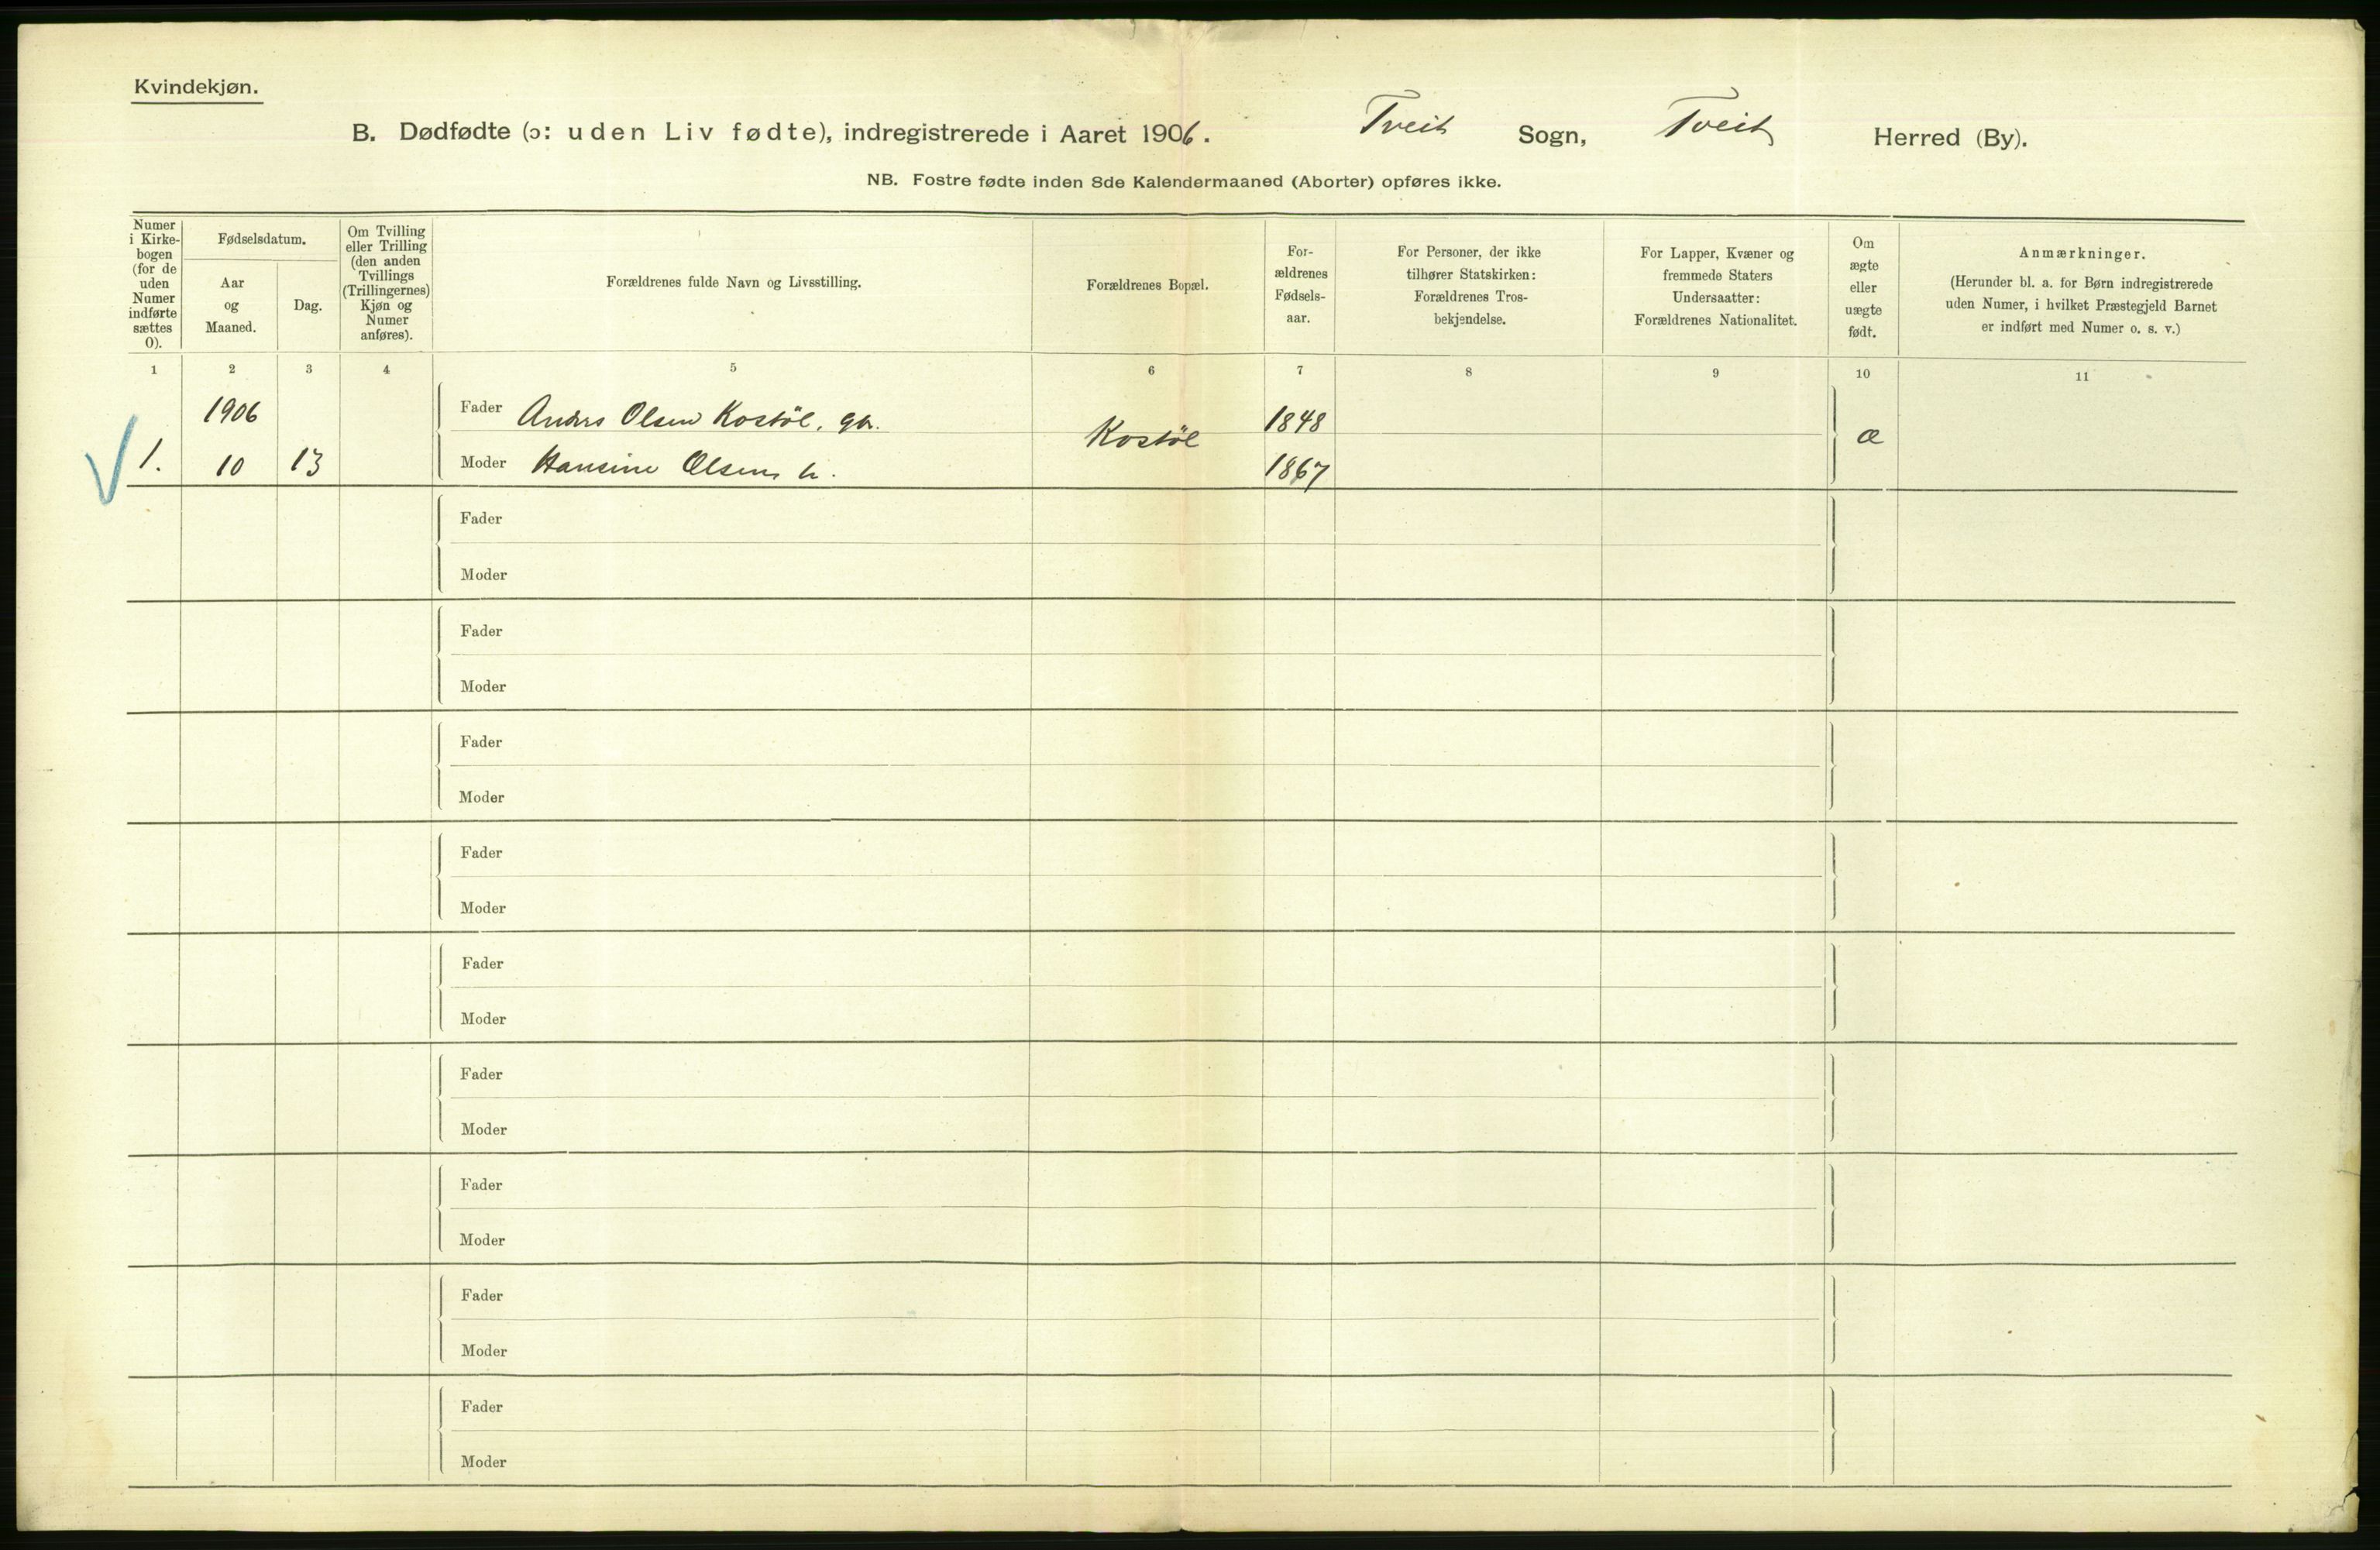 Kvindekjøn.
B. Dødfødte (ɔ: uden Liv fødte), indregistrerede i Aaret 1906. Tveit Sogn, Tveit Herred (By).
NB. Fostre fødte inden 8de Kalendermaaned (Aborter) opføres ikke.
Numer
i Kirke-
bogen
(for de
uden
Numer
indførte
sættes
0).
Fødselsdatum.
Aar
og
Maaned.
Dag.
Om Tvilling
eller Trilling
(den anden
Tvillings
(Trillingernes)
Kjøn og
Numer
anføres).
Forældrenes fulde Navn og Livsstilling.
Forældrenes Bopæl.
For-
ældrenes
Fødsels-
aar.
For Personer, der ikke
tilhører Statskirken:
Forældrenes Tros-
bekjendelse.
For Lapper, Kvæner og
fremmede Staters
Undersaatter:
Forældrenes Nationalitet.
Om
ægte
eller
uægte
født.
Anmærkninger.
(Herunder bl. a. for Børn indregistrerede
uden Numer, i hvilket Præstegjeld Barnet
er indført med Numer o. s. v.)
1 2 3 4 5 6 7 8 9 10 11
1906 Fader Anders Olsen Kostöl, gbr. Kostöl 1848 æ
1. 10 13 Moder Hansine Olsen h. 1867
Fader
Moder
Fader
Moder
Fader
Moder
Fader
Moder
Fader
Moder
Fader
Moder
Fader
Moder
Fader
Moder
Fader
Moder